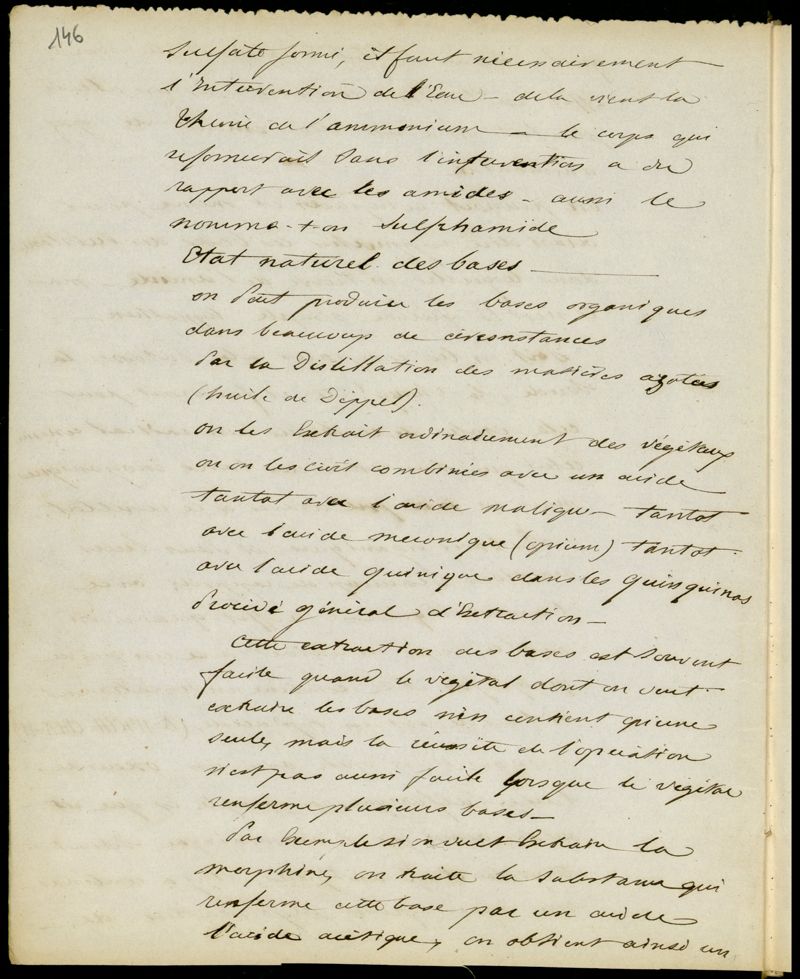 146
Sulfate formé, il faut nécessairement
l'Intervention de l'Eau – de la vient la
théorie de l'ammonium – le corps qui
se formerait sans l'intervention a du
rapport avec les amides – aussi le
nomme-t-on Sulphamide
Etat naturel des bases
on peut produire les bases organiques
dans beaucoup de circonstances
Par la Distillation des matières azotées
(huile de Dippel).
on les Extrait ordinairement des végétaux
ou on les combinées avec un acide
tantot avec l'acide malique – tantot
avec l'acide meconique (opium) tantot
avec l'acide quinique dans les quinquinas
Procédé général d'Extraction –
Cette extraction des bases est souvent
facile quand le végétal dont on veut
extraire les bases n'en contient qu'une
seule, mais la réussite de l'opération
n'est pas aussi facile lorsque le végétal
renferme plusieurs bases –
Par Exemple si on veut Extraire la
morphine, on traite la substance qui
renferme cette base par un acide
l'acide acétique, on obtient ainsi un